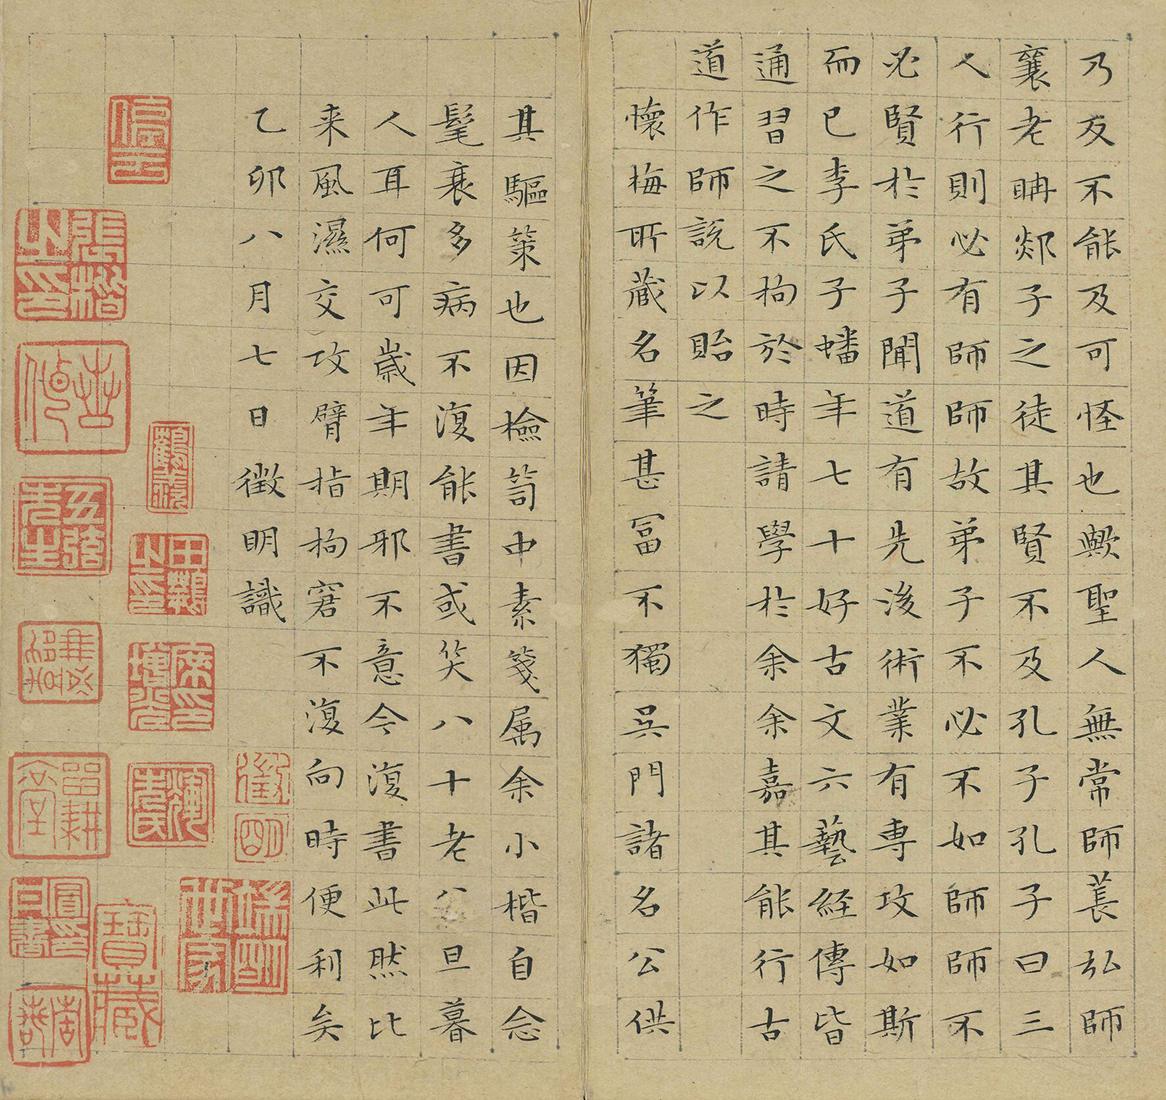 乃反不能及可怪也歟聖人無常師萇弘師
襄老聃郯子之徒其賢不及孔子孔子曰三
人行則必有師師故弟子不必不如師師不
必賢於弟子聞道有先後術業有專攻如斯
而已李氏子蟠年七十好古文六藝經傳皆
通習之不拘於時請學於余余嘉其能行古
道作師説以貽之
懷梅所藏名筆甚冨不獨吳門諸名公供
其驅策也因檢笥中素箋属余小楷自念
髦衰多病不復能書或笑八十老公旦暮
人耳何可歲年期邪不意今復書此然比
来風濕交攻臂指拘窘不復向時便利矣
乙卯八月七日徵明識
徵明
停雲
張楷之印
五峰先生
田耕堂
寶藏